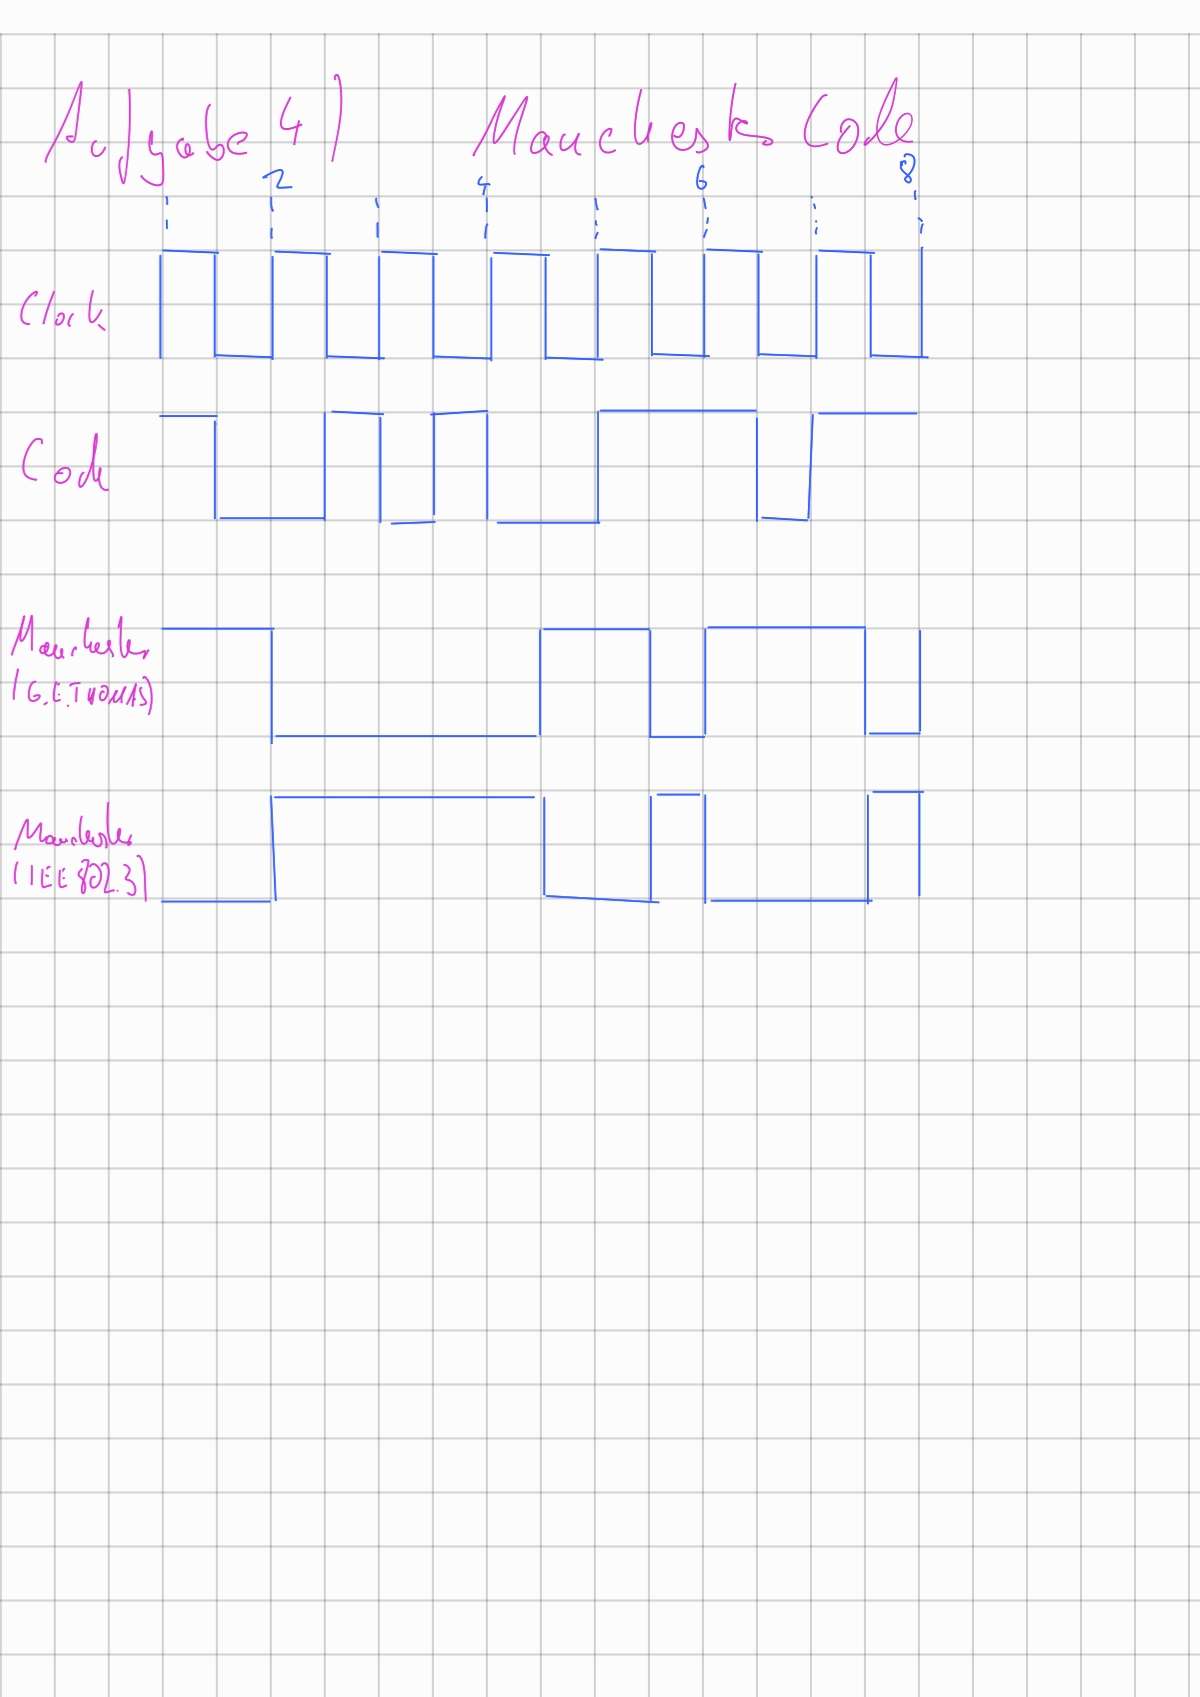 Aufgabe 4) Manchester Code
2 4 6 8
Clock
Code
Manchester
(G.E.THOMAS)
Manchester
(IEE 802.3)